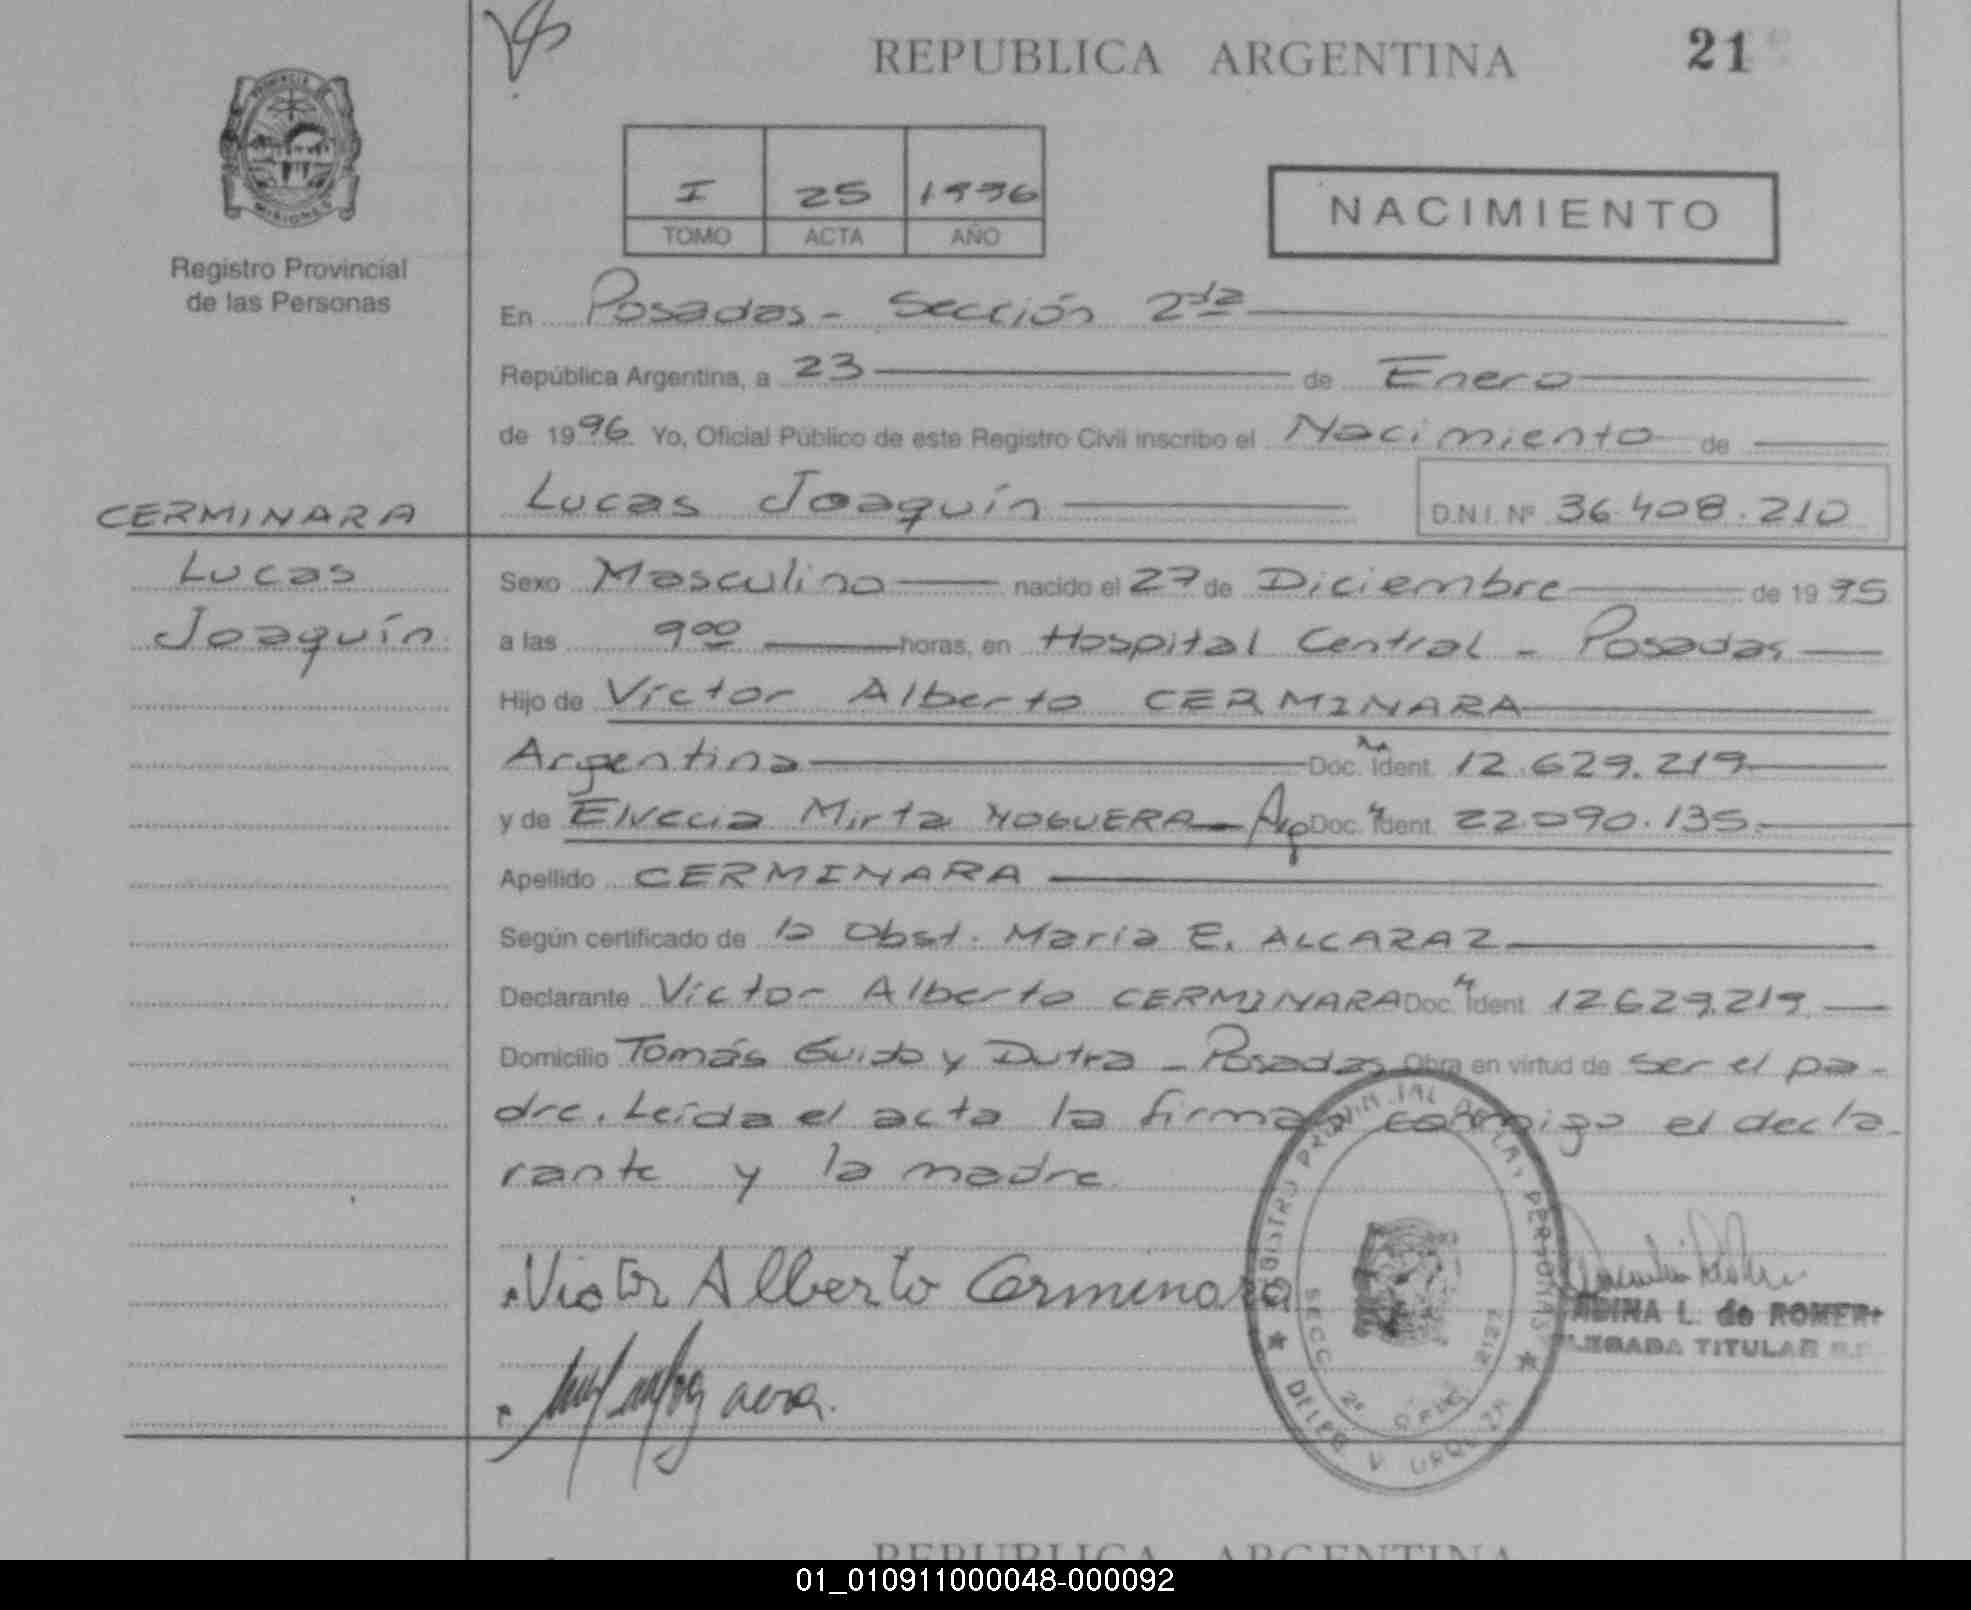 REPUBLICA ARGENTINA
21
PROVINCIA DE
MISIONES
Registro Provincial
de las Personas
I 25 1996
TOMO ACTA AÑO
NACIMIENTO
En Posadas - Sección 2da
República Argentina, a 23 de Enero
de 1996 Yo, Oficial Público de este Registro Civil inscribo el Nacimiento de
CERMINARA
Lucas Joaquín
D.N.I. Nº 36.408.210
Lucas
Joaquín
Sexo Masculino nacido el 27 de Diciembre de 1995
a las 9 00 horas, en Hospital Central - Posadas
Hijo de Víctor Alberto CERMINARA
Argentina Doc. Ident. 12.629.219
y de Elvecia Mirta NOGUERA Arg Doc. Ident. 22.090.135
Apellido CERMINARA
Según certificado de la Obst. María E. ALCARAZ
Declarante Víctor Alberto CERMINARA Doc. Ident. 12.629.219
Domicilio Tomás Guido y Dutra - Posadas Obra en virtud de ser el pa-
dre. Leída el acta la firman conmigo el decla-
rante y la madre.
Victor Alberto Cerminara
SECC 2ª
DELEG V URQUIZA
L. de ROMERO
TITULAR
REPUBLICA ARGENTINA
01_010911000048-000092